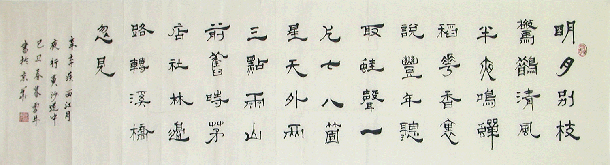 明月别枝
驚鵲清風
半夜鳴蟬
稻華香裏
說豐年聽
取蛙聲一
片七八箇
星天外兩
三點雨山
前舊時茅
店社林邊
路轉溪橋
忽見
辛棄疾西江月
夜行黃沙道中
己丑春暮
書於京華